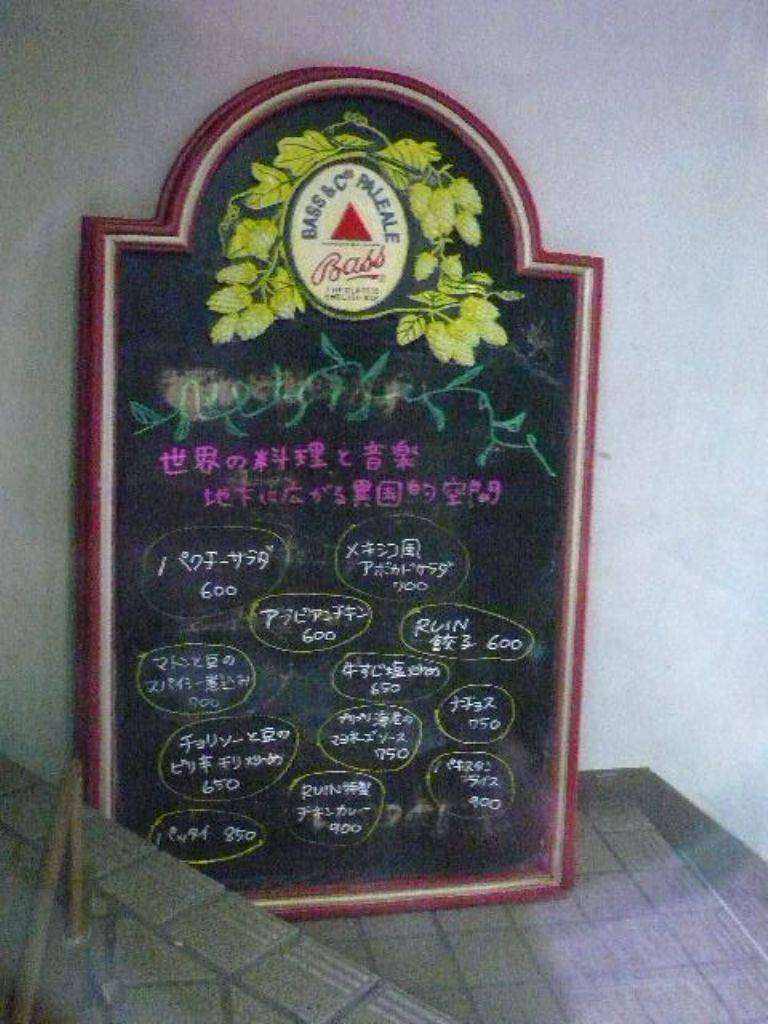 BASS & Co PALE ALE
Bass
世界の料理と音楽
地下に広がる異国的空間
パクチーサラダ
600
メキシコ風
アボカドサラダ
700
アラビアンチキン
600
RUIN
餃子 600
マトンと豆の
スパイシー煮込み
700
牛すじ塩炒め
650
ナチョス
750
チョリソーと豆の
ピリ辛チリ炒め
650
プリプリ海老の
マヨネーズソース
750
パキスタン
ライス
900
RUIN特製
チキンカレー
900
パッタイ 850